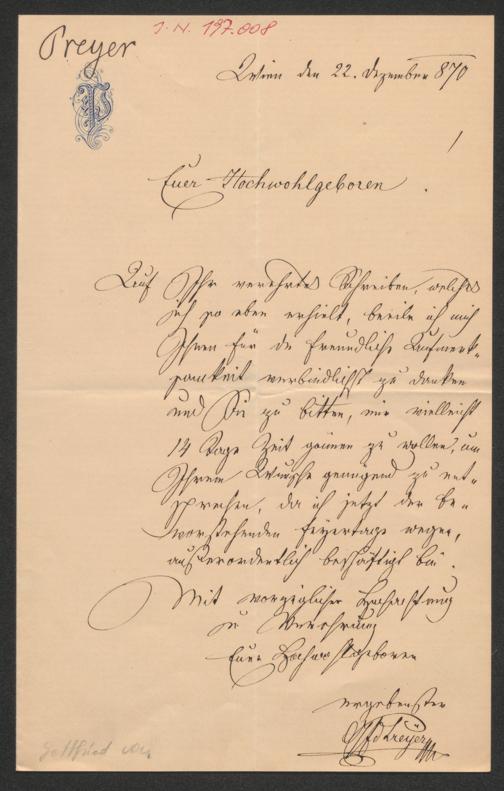 Preyer
I. N. 197.008
P
Wien den 22. Dezember 870
Euer Hochwohlgeboren
Auf Ihr verehrtes Schreiben, welches
ich so eben erhielt, beeile ich mich
Ihnen für die freundliche Aufmerk-
samkeit verbindlichst zu danken
und Sie zu bitten, mir vielleicht
14 Tage Zeit gönnen zu wollen, um
Ihrem Wunsche genügend zu ent-
sprechen, da ich jetzt der be-
vorstehenden Feyertage wegen,
außerordentlich beschäftigt bin.
Mit vorzüglicher Hochachtung
u Verehrung
Euer Hochwohlgeboren
ergebenster
Gfd Preyer
Gottfried von